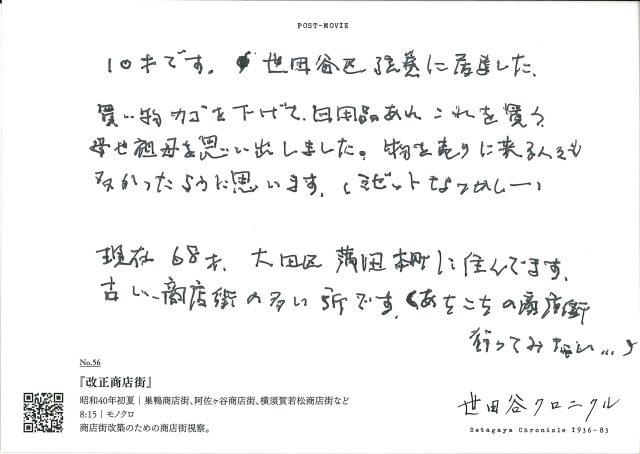 POST-MOVIE
10才です。世田谷区弦巻に居ました。
買い物カゴを下げて、日用品のあれこれを買う
母や祖母を思い出しました。物を売りに来る人も
多かったように思います。(ミゼットなつかしー)
現在68才、大田区蒲田本町に住んでます。
古い商店街の多い所です。(あちこちの商店街
行ってみたい...)
No.56
『改正商店街』
昭和40年初夏|巣鴨商店街、阿佐ヶ谷商店街、横須賀若松商店街など
8:15|モノクロ
商店街改築のための商店街視察。
世田谷クロニクル
Setagaya Chronicle 1936-83